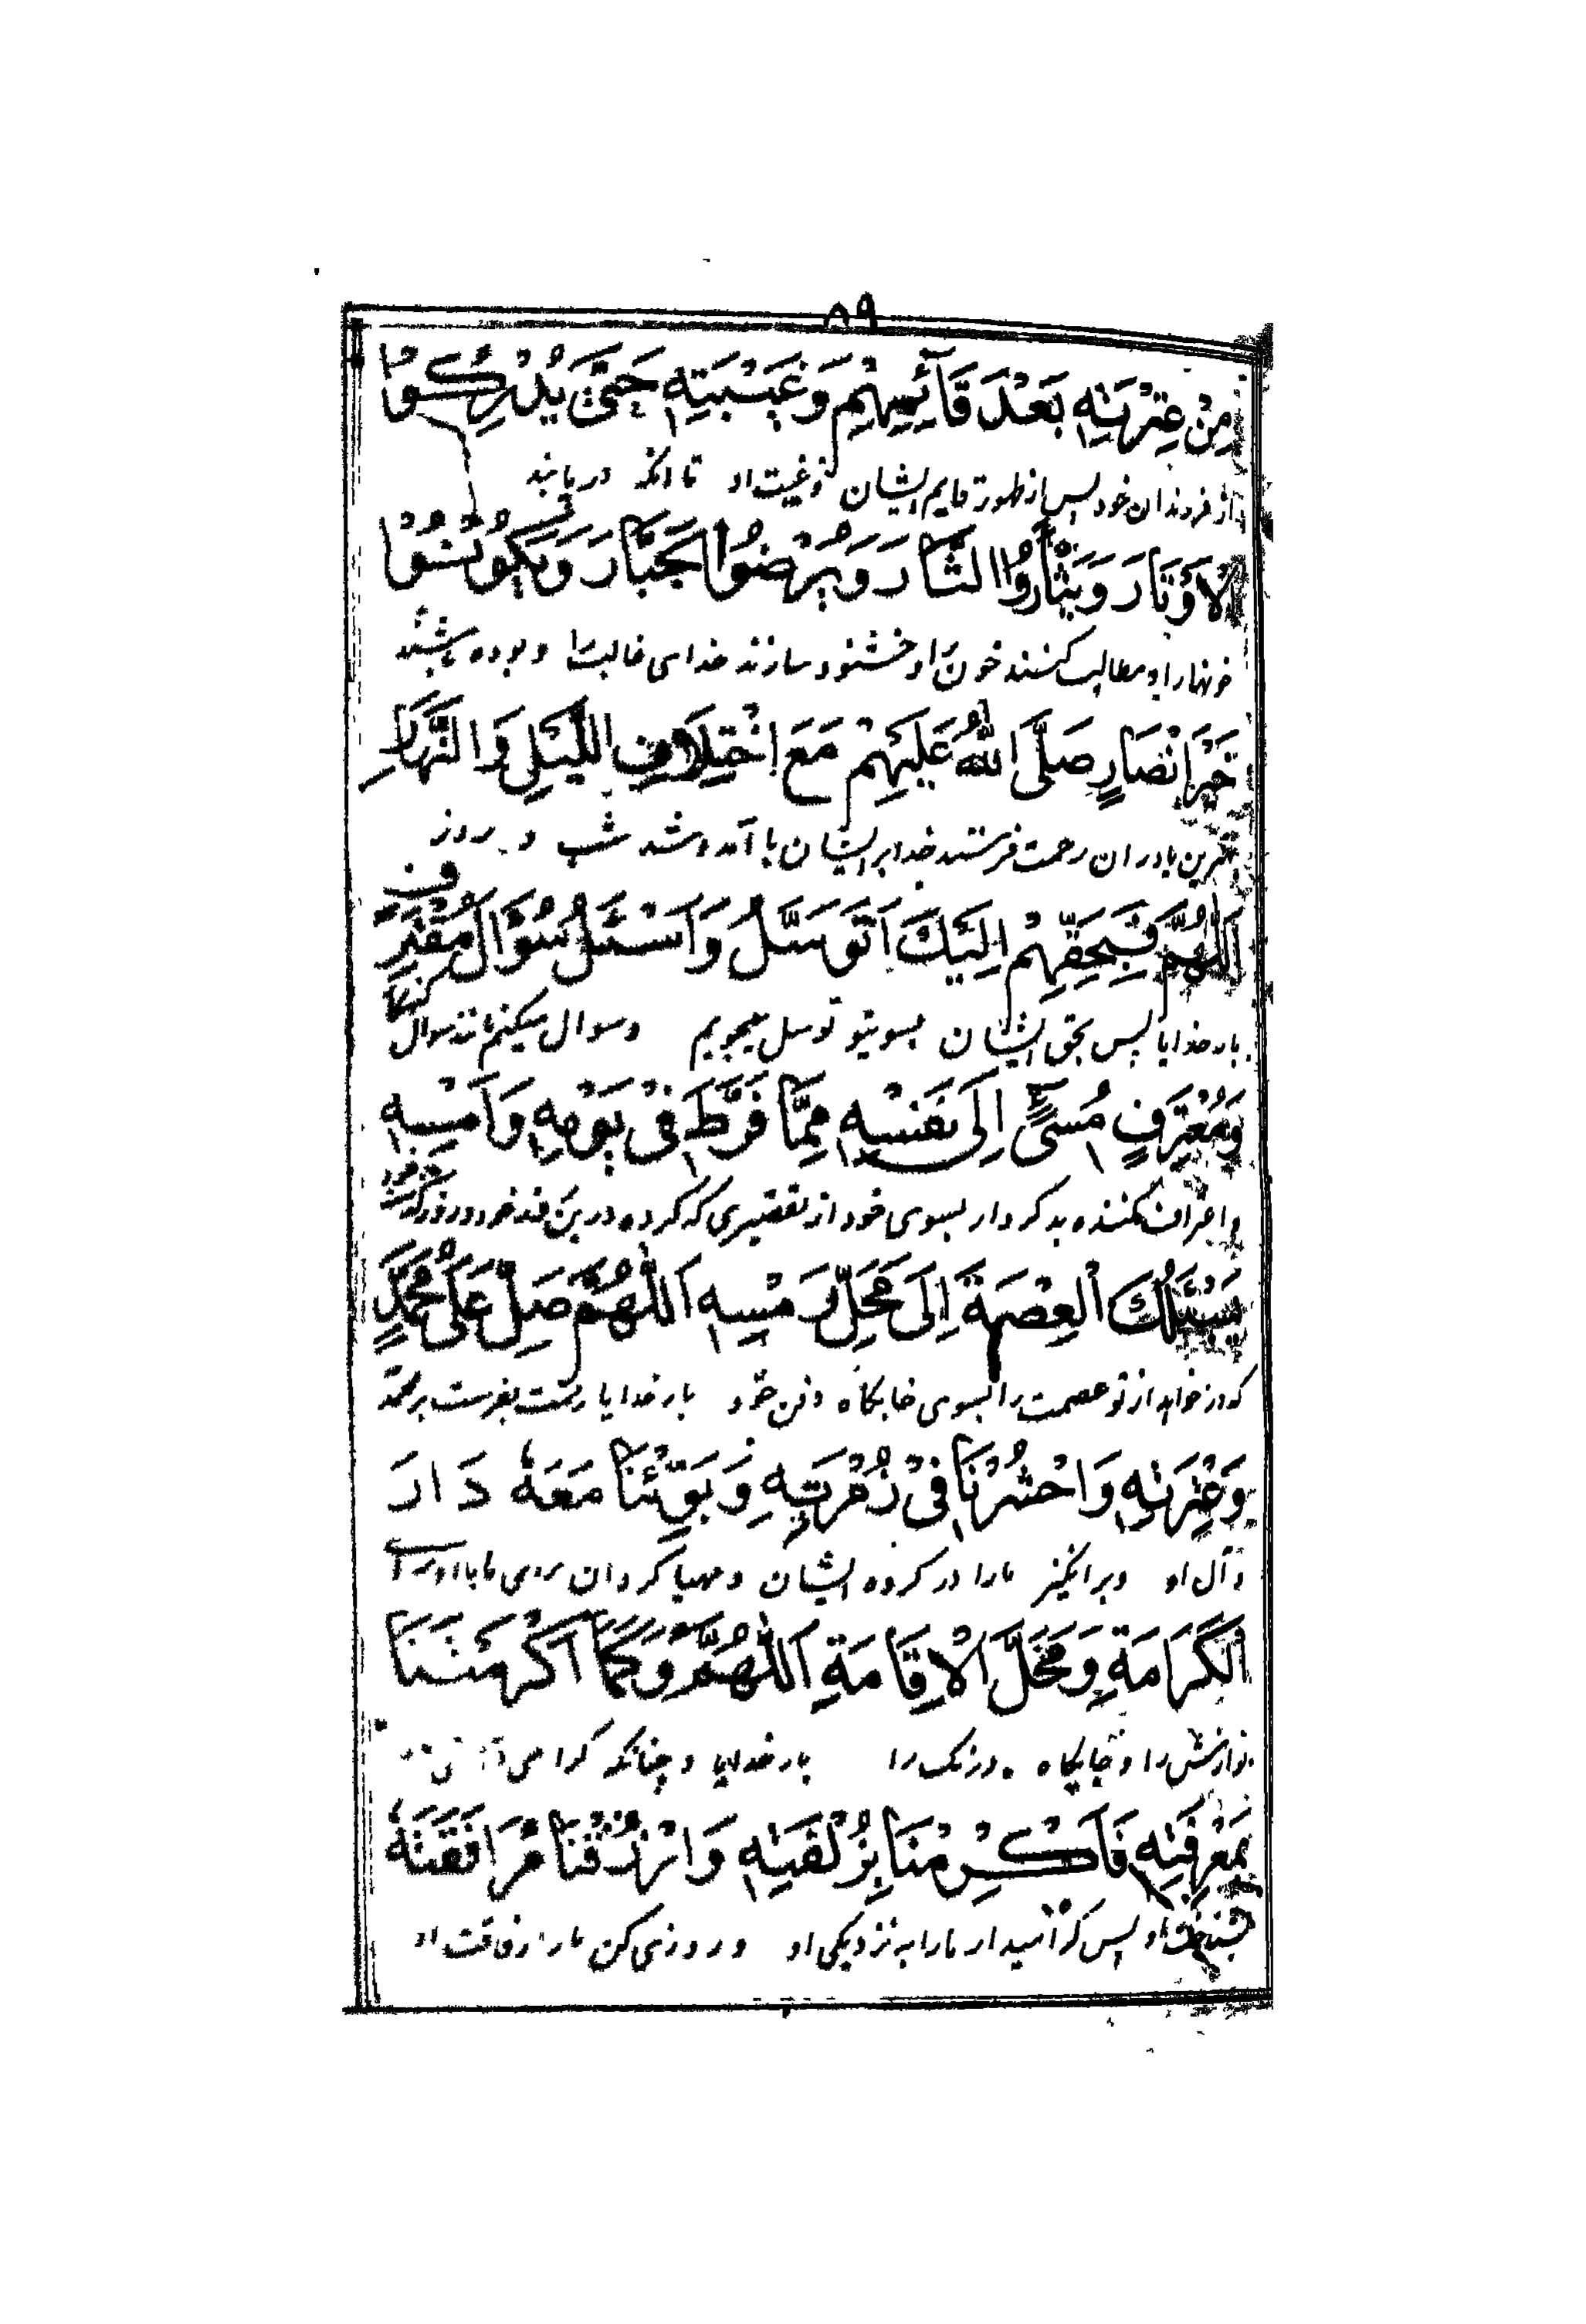 ۸۹
مِنْ عِتْرَتِهِ بَعْدَ قَآئِمِهِمْ وَغَيْبَتِهِ حَتّٰى يُدْرِكُوا
از فرزندان خود پس از ظهور قایم ایشان و غیبت او تا انکه دریابند
الْاَوْتَارَ وَيَثْاَرُوا الثَّارَ وَيُرْضُوا الْجَبَّارَ وَيَكُوْنُوْا
خونها را و مطالبه کنند خون را و خشنود سازند خدای غالب را و بوده باشند
خَيْرَ اَنْصَارٍ صَلَّى اللّٰهُ عَلَيْهِمْ مَعَ اخْتِلَافِ اللَّيْلِ وَالنَّهَارِ
بهترین یاوران رحمت فرستد خدا بر ایشان با آمد و شد شب و روز
اَللّٰهُمَّ فَبِحَقِّهِمْ اِلَيْكَ اَتَوَسَّلُ وَاَسْئَلُ سُؤَالَ مُقْتَرِفٍ
بار خدایا پس بحق ایشان بسویتو توسل میجویم و سوال میکنم مانند سوال
وَمُعْتَرِفٍ مُسِىْءٍ اِلٰى نَفْسِهِ مِمَّا فَرَّطَ فِىْ يَوْمِهِ وَاَمْسِهِ
و اعتراف کننده بد کردار بسوی خود از تقصیری که کرده درین روز خود و روز گذشته خود
يَسْئَلُكَ الْعِصْمَةَ اِلٰى مَحَلِّ رَمْسِهِ اَللّٰهُمَّ صَلِّ عَلٰى مُحَمَّدٍ
که در خواهد از تو عصمت را بسوی خابگاه دفن خود بار خدایا رحمت بفرست بر محمد
وَعِتْرَتِهِ وَاحْشُرْنَا فِىْ زُمْرَتِهِ وَبَوِّئْنَا مَعَهٗ دَارَ
و آل او و برانگیز ما را در کروه ایشان و مهیا کردان برای ما با او سرای
الْكَرَامَةِ وَمَحَلَّ الْاِقَامَةِ اَللّٰهُمَّ وَكَمَا اَكْرَمْتَنَا
نوازش را و جایگاه درنک را بار خدایا و چنانکه گرامی
بِمَعْرِفَتِهِ فَاَكْرِمْنَا بِزُلْفَتِهِ وَارْزُقْنَا مُرَافَقَتَهٗ
بشناخت او پس گرامیدار ما را به نزدیکی او و روزی کن ما را رفاقت او